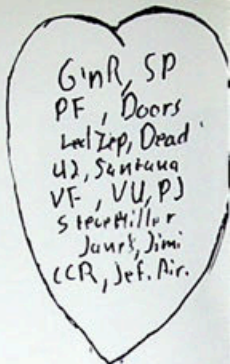 G'nR, SP
PF, Doors
Led Zep, Dead
U2, Santana
VF, VU, PJ
Steve Miller
Janes, Jimi
CCR, Jef. Air.